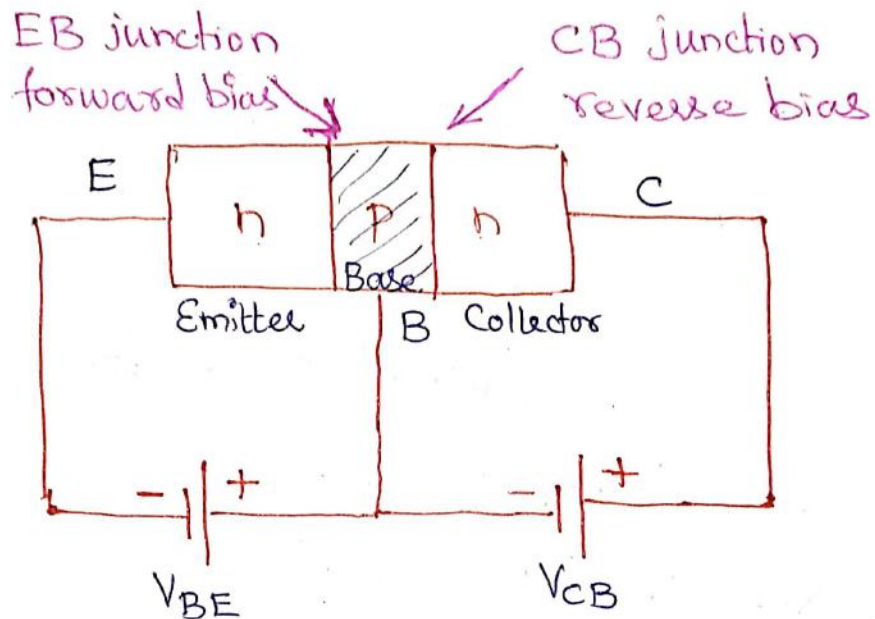 EB junction
forward bias
CB junction
reverse bias
E
C
n
p
n
Base
Emitter
B
Collector
-
+
-
+
VBE
VCB